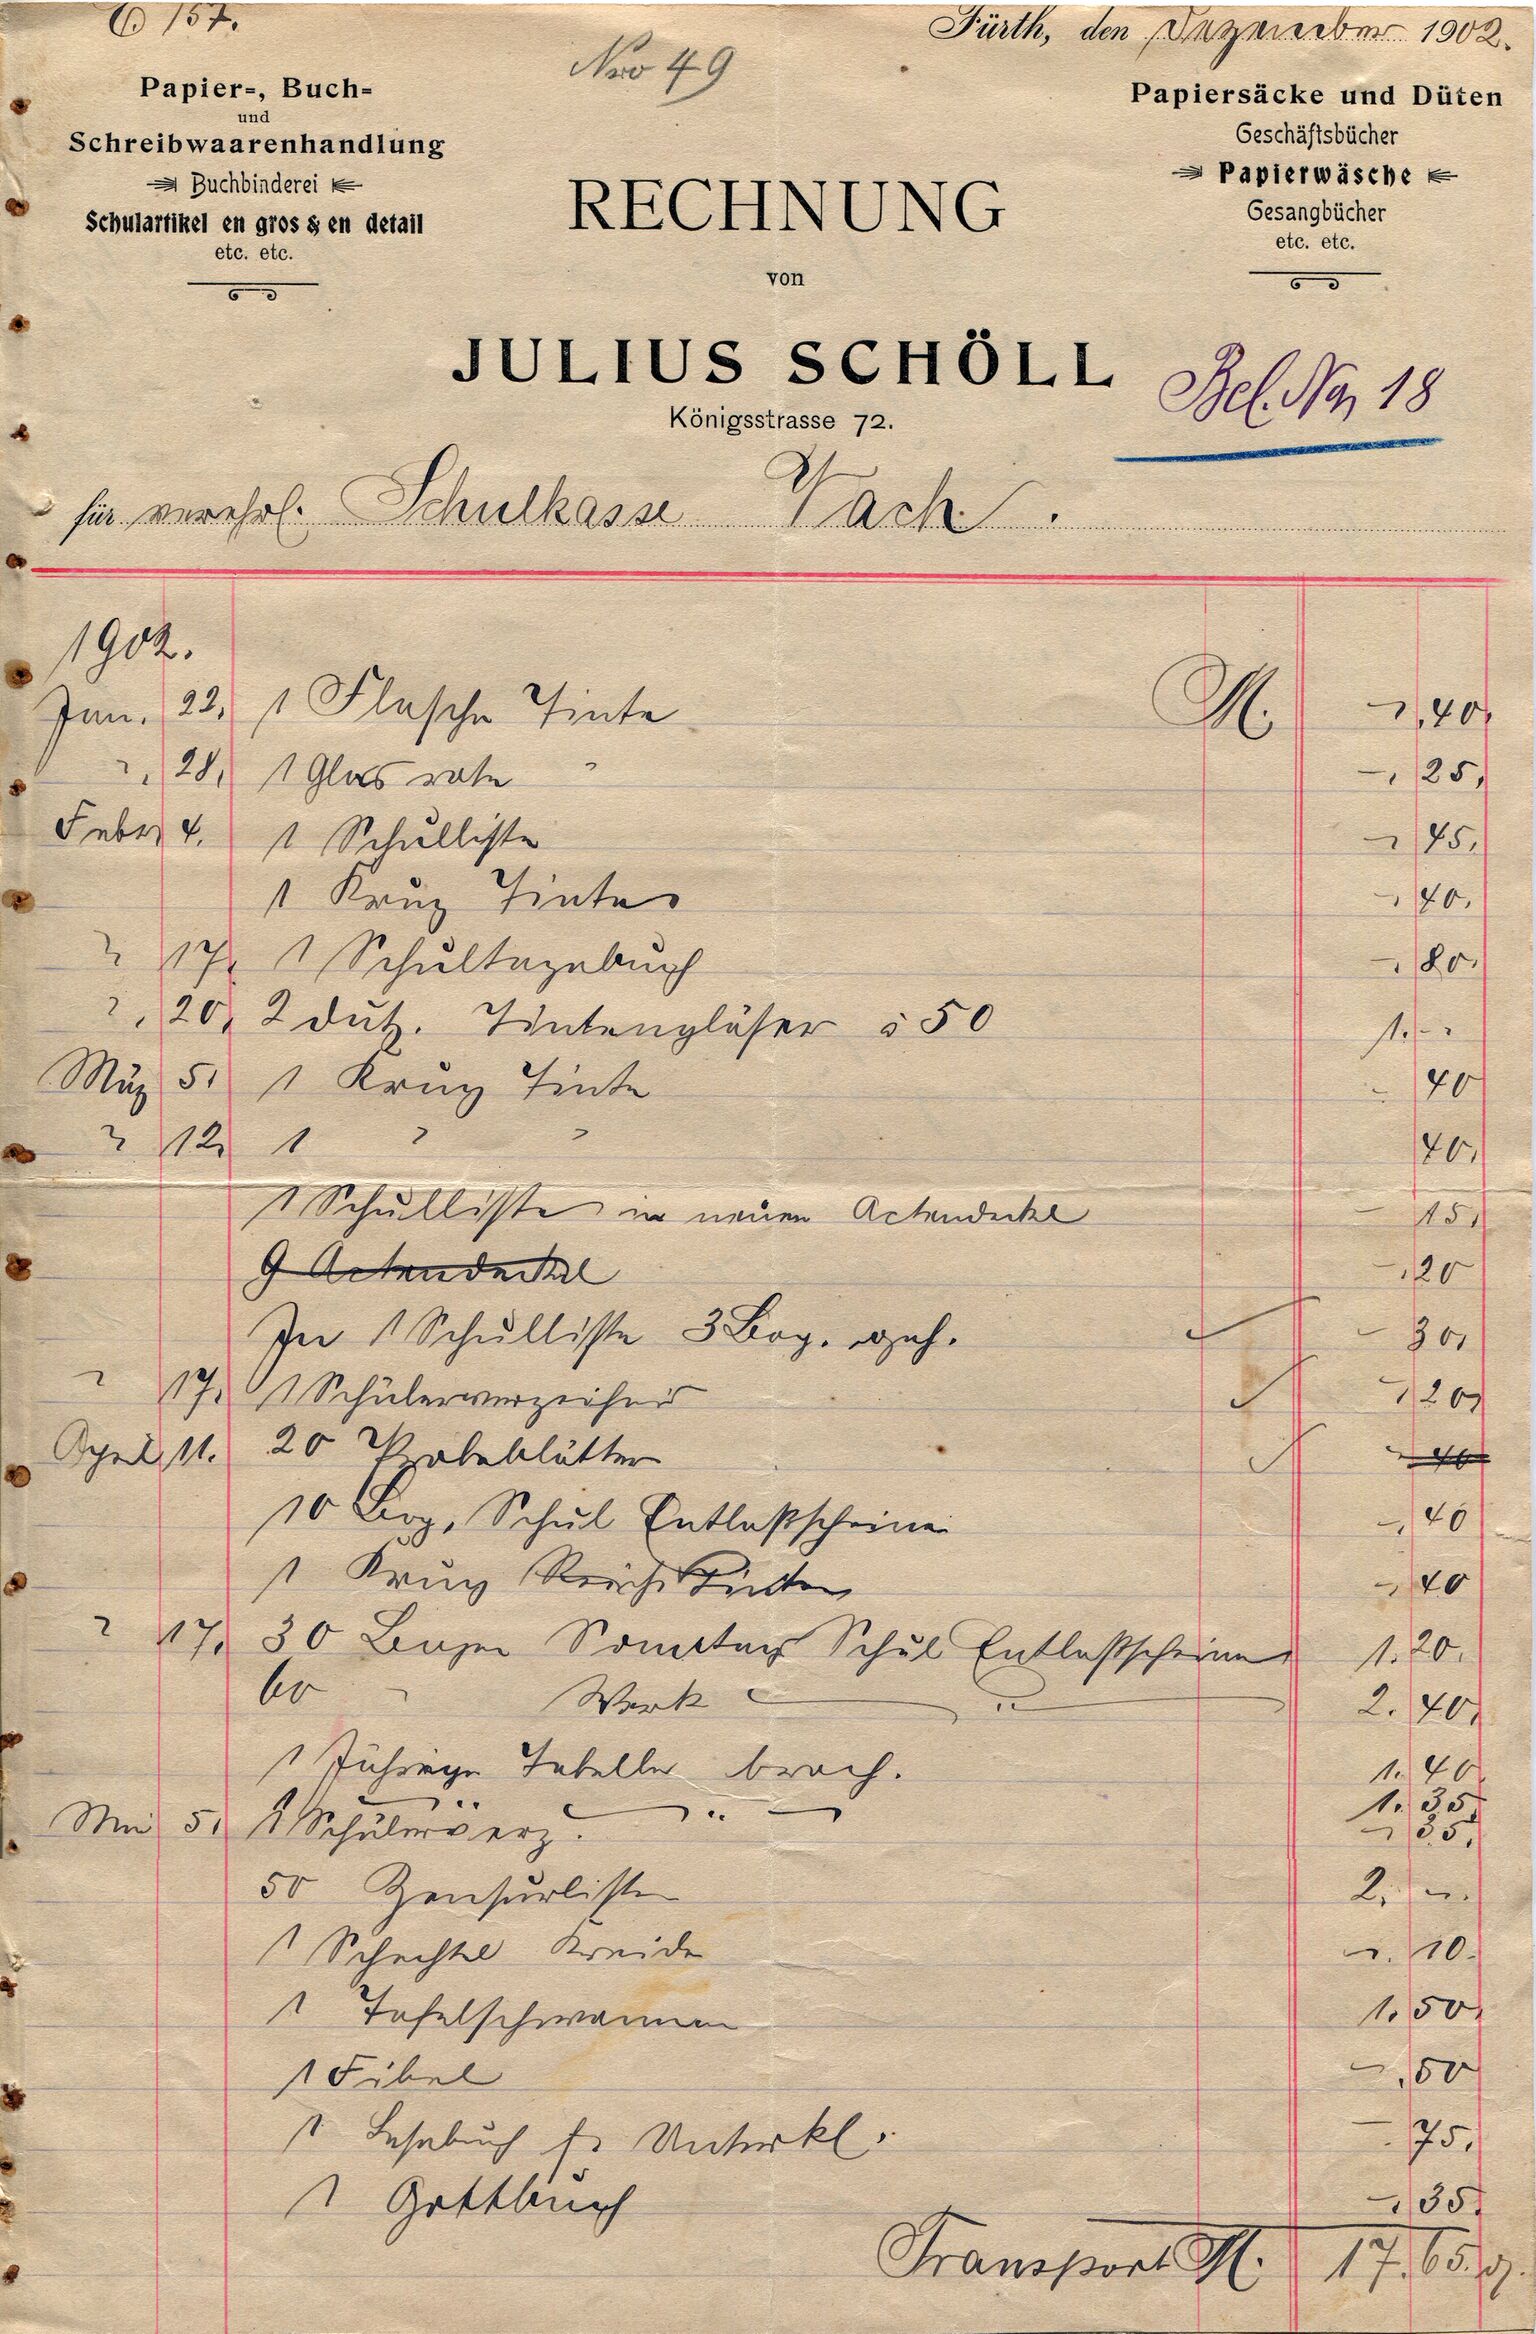 157.
Nro 49
Fürth, den Dezember 1902.
Papier-, Buch-
und
Schreibwaarenhandlung
Buchbinderei
Schulartikel en gros & en detail
etc. etc.
Papiersäcke und Düten
Geschäftsbücher
Papierwäsche
Gesangbücher
etc. etc.
RECHNUNG
von
JULIUS SCHÖLL
Königsstrasse 72.
Bel. No, 18
für verehrl. Schulkasse Vach.
1902.
Jan. 22. 1 Flasche Tinte M. -,40.
" 28. 1 Glas rote " -,25,
Febr. 4. 1 Schulliste -,45,
1 Krug Tinte -,40,
" 17. 1 Schultagebuch -,80.
" 20. 2 dutz. Tintengläser à 50 1.-
März 5. 1 Krug Tinte -40
" 12. 1 " " 40,
1 Schulliste in neuen Actendeckel -15,
9 Actendeckel -,20
In 1 Schulliste 3 Bog. -30,
" 17. 1 Schülerverzeichnis -,20,
April 11. 20 Probeblätter 40
10 Bog. Schul Entlaßscheine -,40
1 Krug Reichs Tinten -,40
" 17. 30 Bogen Sonntags Schul Entlaßscheine 1.20.
60 " Werk " 2.40,
1 Jährige Tabelle broch. 1.40
1.35
Mai 5. 1 Schülerverz. " -,35,
50 Zensurlisten 2,-.
1 Schachtel Kreide -.10.
1 Tafelschwamm 1.50,
1 Fibel -,50
1 Lesebuch f. Unterkl. -75,
1 -,35.
Transport M. 17.65.